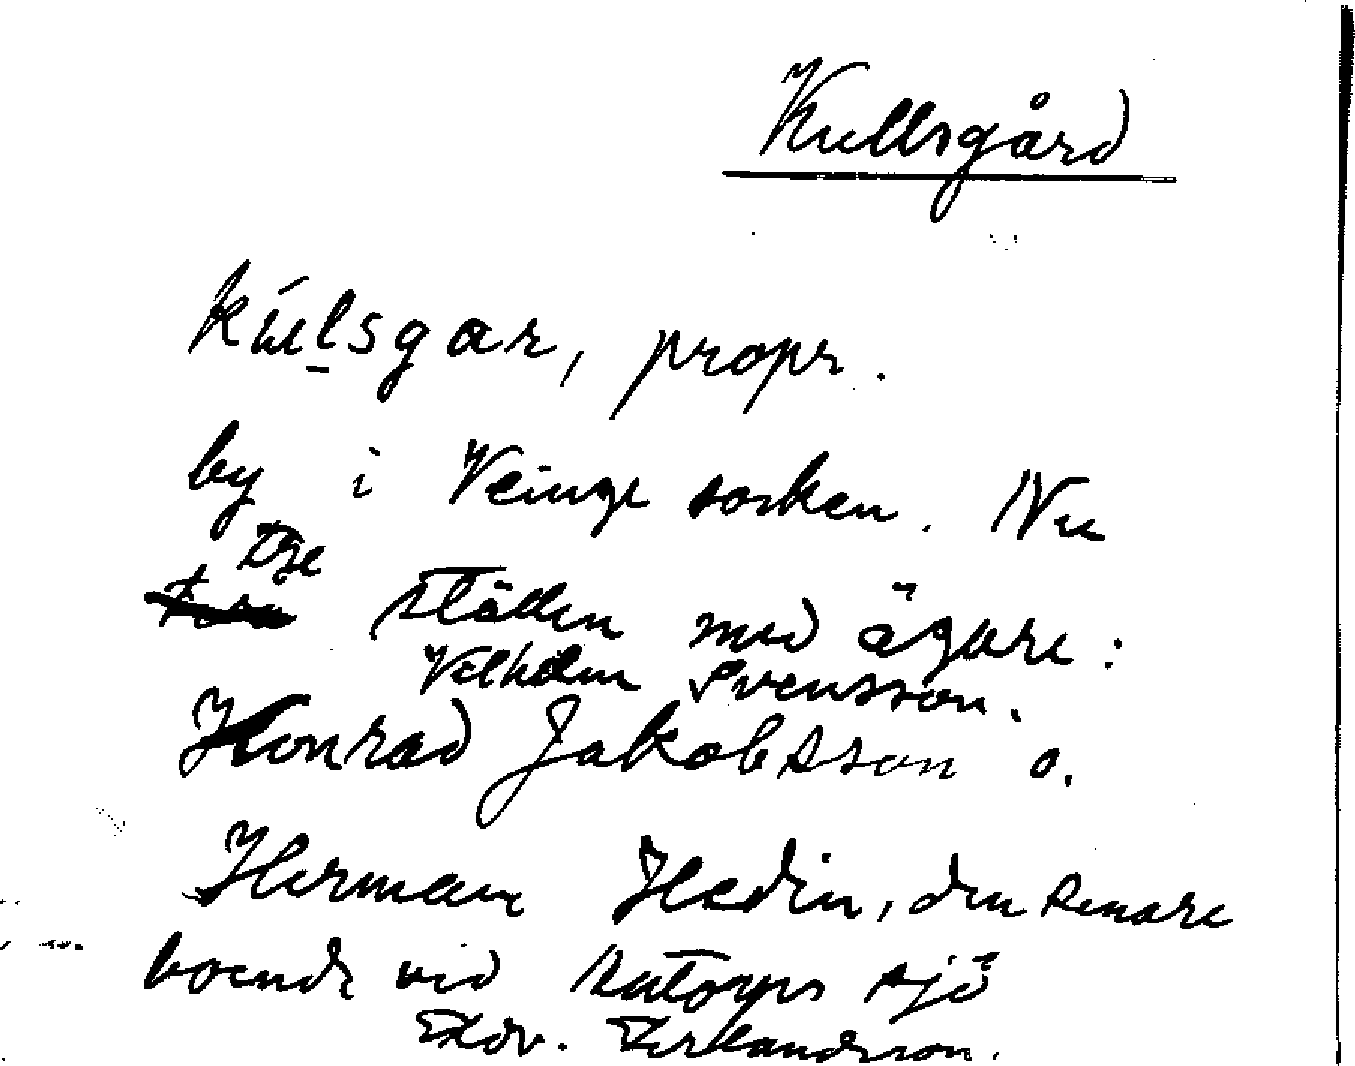 Kullsgård
kúl̲sgar, propr.
by i Veinge socken. Nu
tre
ställen med ägare:
Vilhelm Svensson.
Konrad Jakobsson o.
Herman Hedin, den senare
boende vid sjö